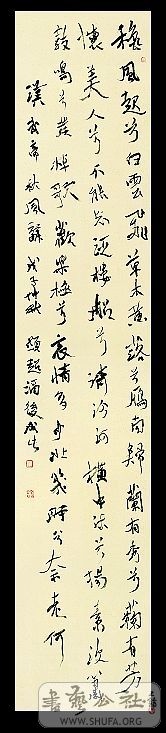 穐風起兮白雲飛草木黄落兮鴈南歸蘭有秀兮蘜有芳
懷美人兮不能忘泛樓船兮濟汾河橫中流兮揚素波簫
鼓鳴兮發棹歌歡樂極兮哀情多少壯幾時兮奈老何
漢武帝秋風辭戊子仲秋超酒後
書法公社
WWW.SHUFA.ORG